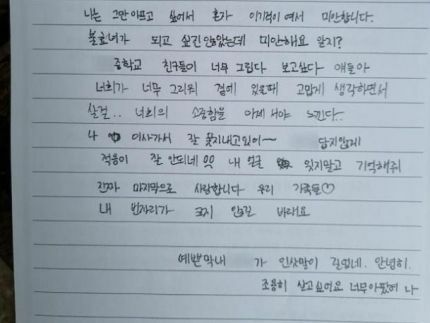 나는 그만 아프고 싶어서 혼자 이기적이여서 미안합니다.
불효녀가 되고 싶진 않았는데 미안해요 알지?
중학교 친구들이 너무 그립다 보고싶다 얘들아
너희가 너무 그리워 곁에 있을때 고맙게 생각하면서
살걸.. 너희의 소중함을 이제서야 느낀다..
나 이사가서 잘 못지내고있어~ 답지않게
적응이 잘 안되네 내 얼굴 잊지말고 기억해줘
진짜 마지막으로 사랑합니다 우리 가족들♡
내 빈자리가 크지 않길 바래요
예쁜막내 가 인삿말이 길었네. 안녕히.
조용히 살고싶어요 너무아팠어 나